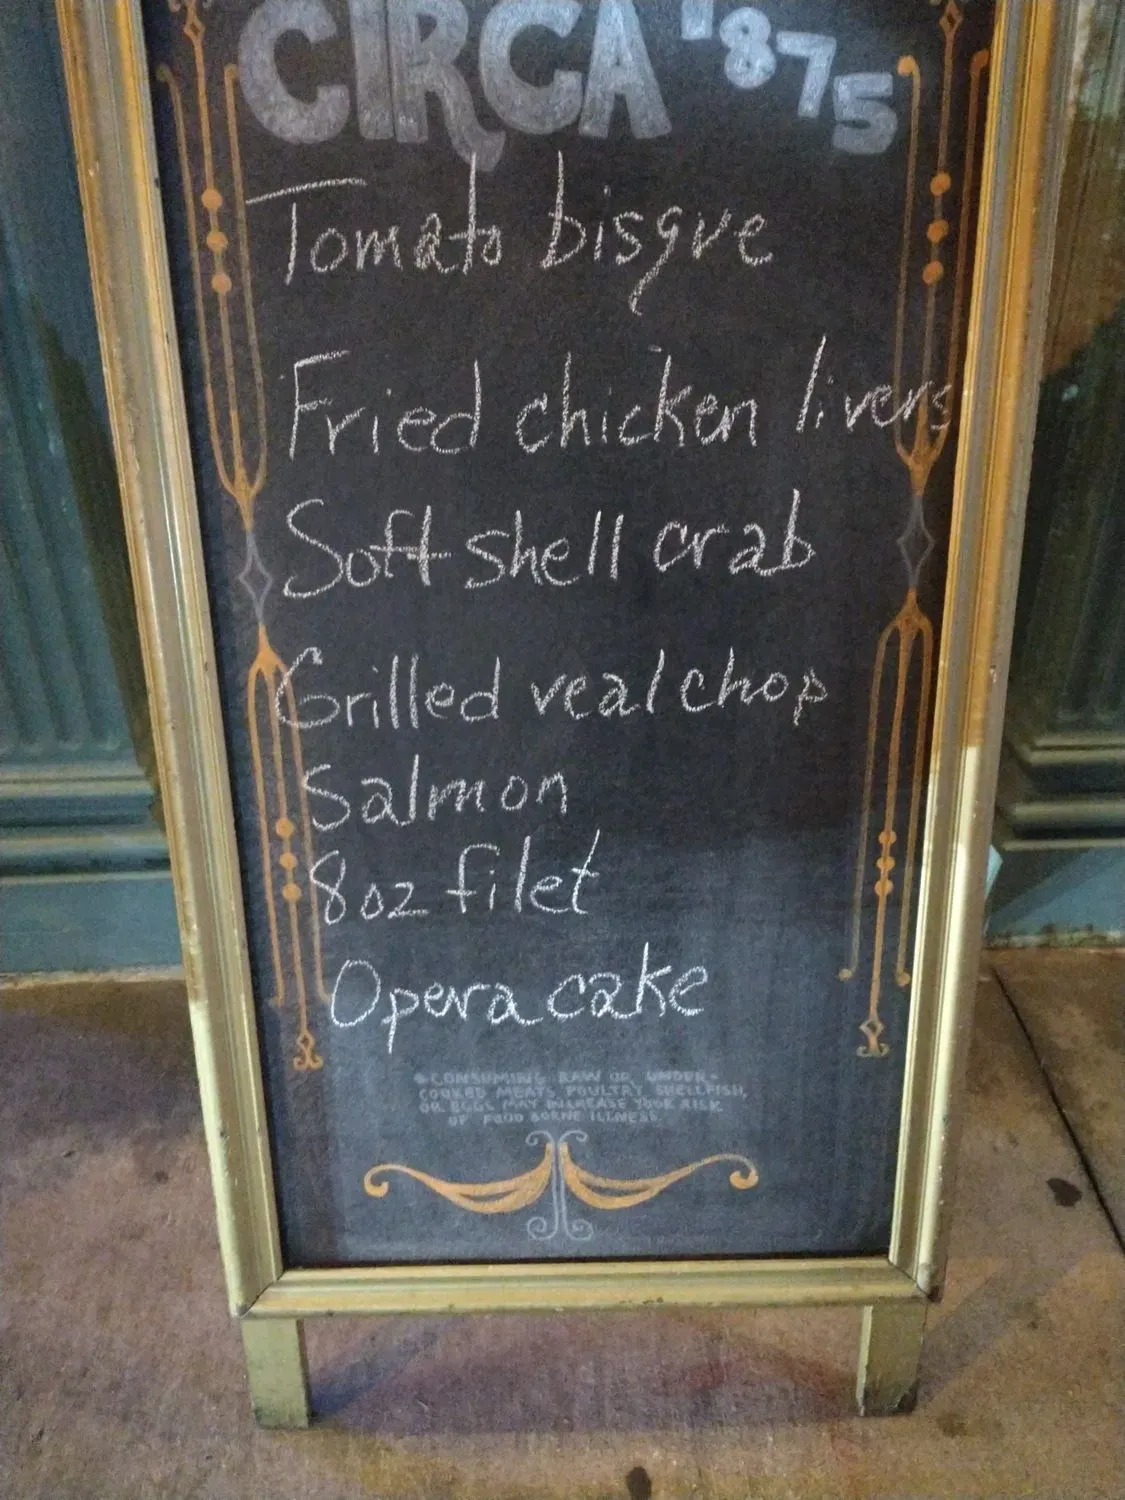 CIRCA 1875
Tomato bisque
Fried chicken livers
Soft shell crab
Grilled veal chop
Salmon
8oz filet
Opera cake
*CONSUMING RAW OR UNDER-
COOKED MEATS, POULTRY, SHELLFISH,
OR EGGS MAY INCREASE YOUR RISK
OF FOOD BORNE ILLNESS.